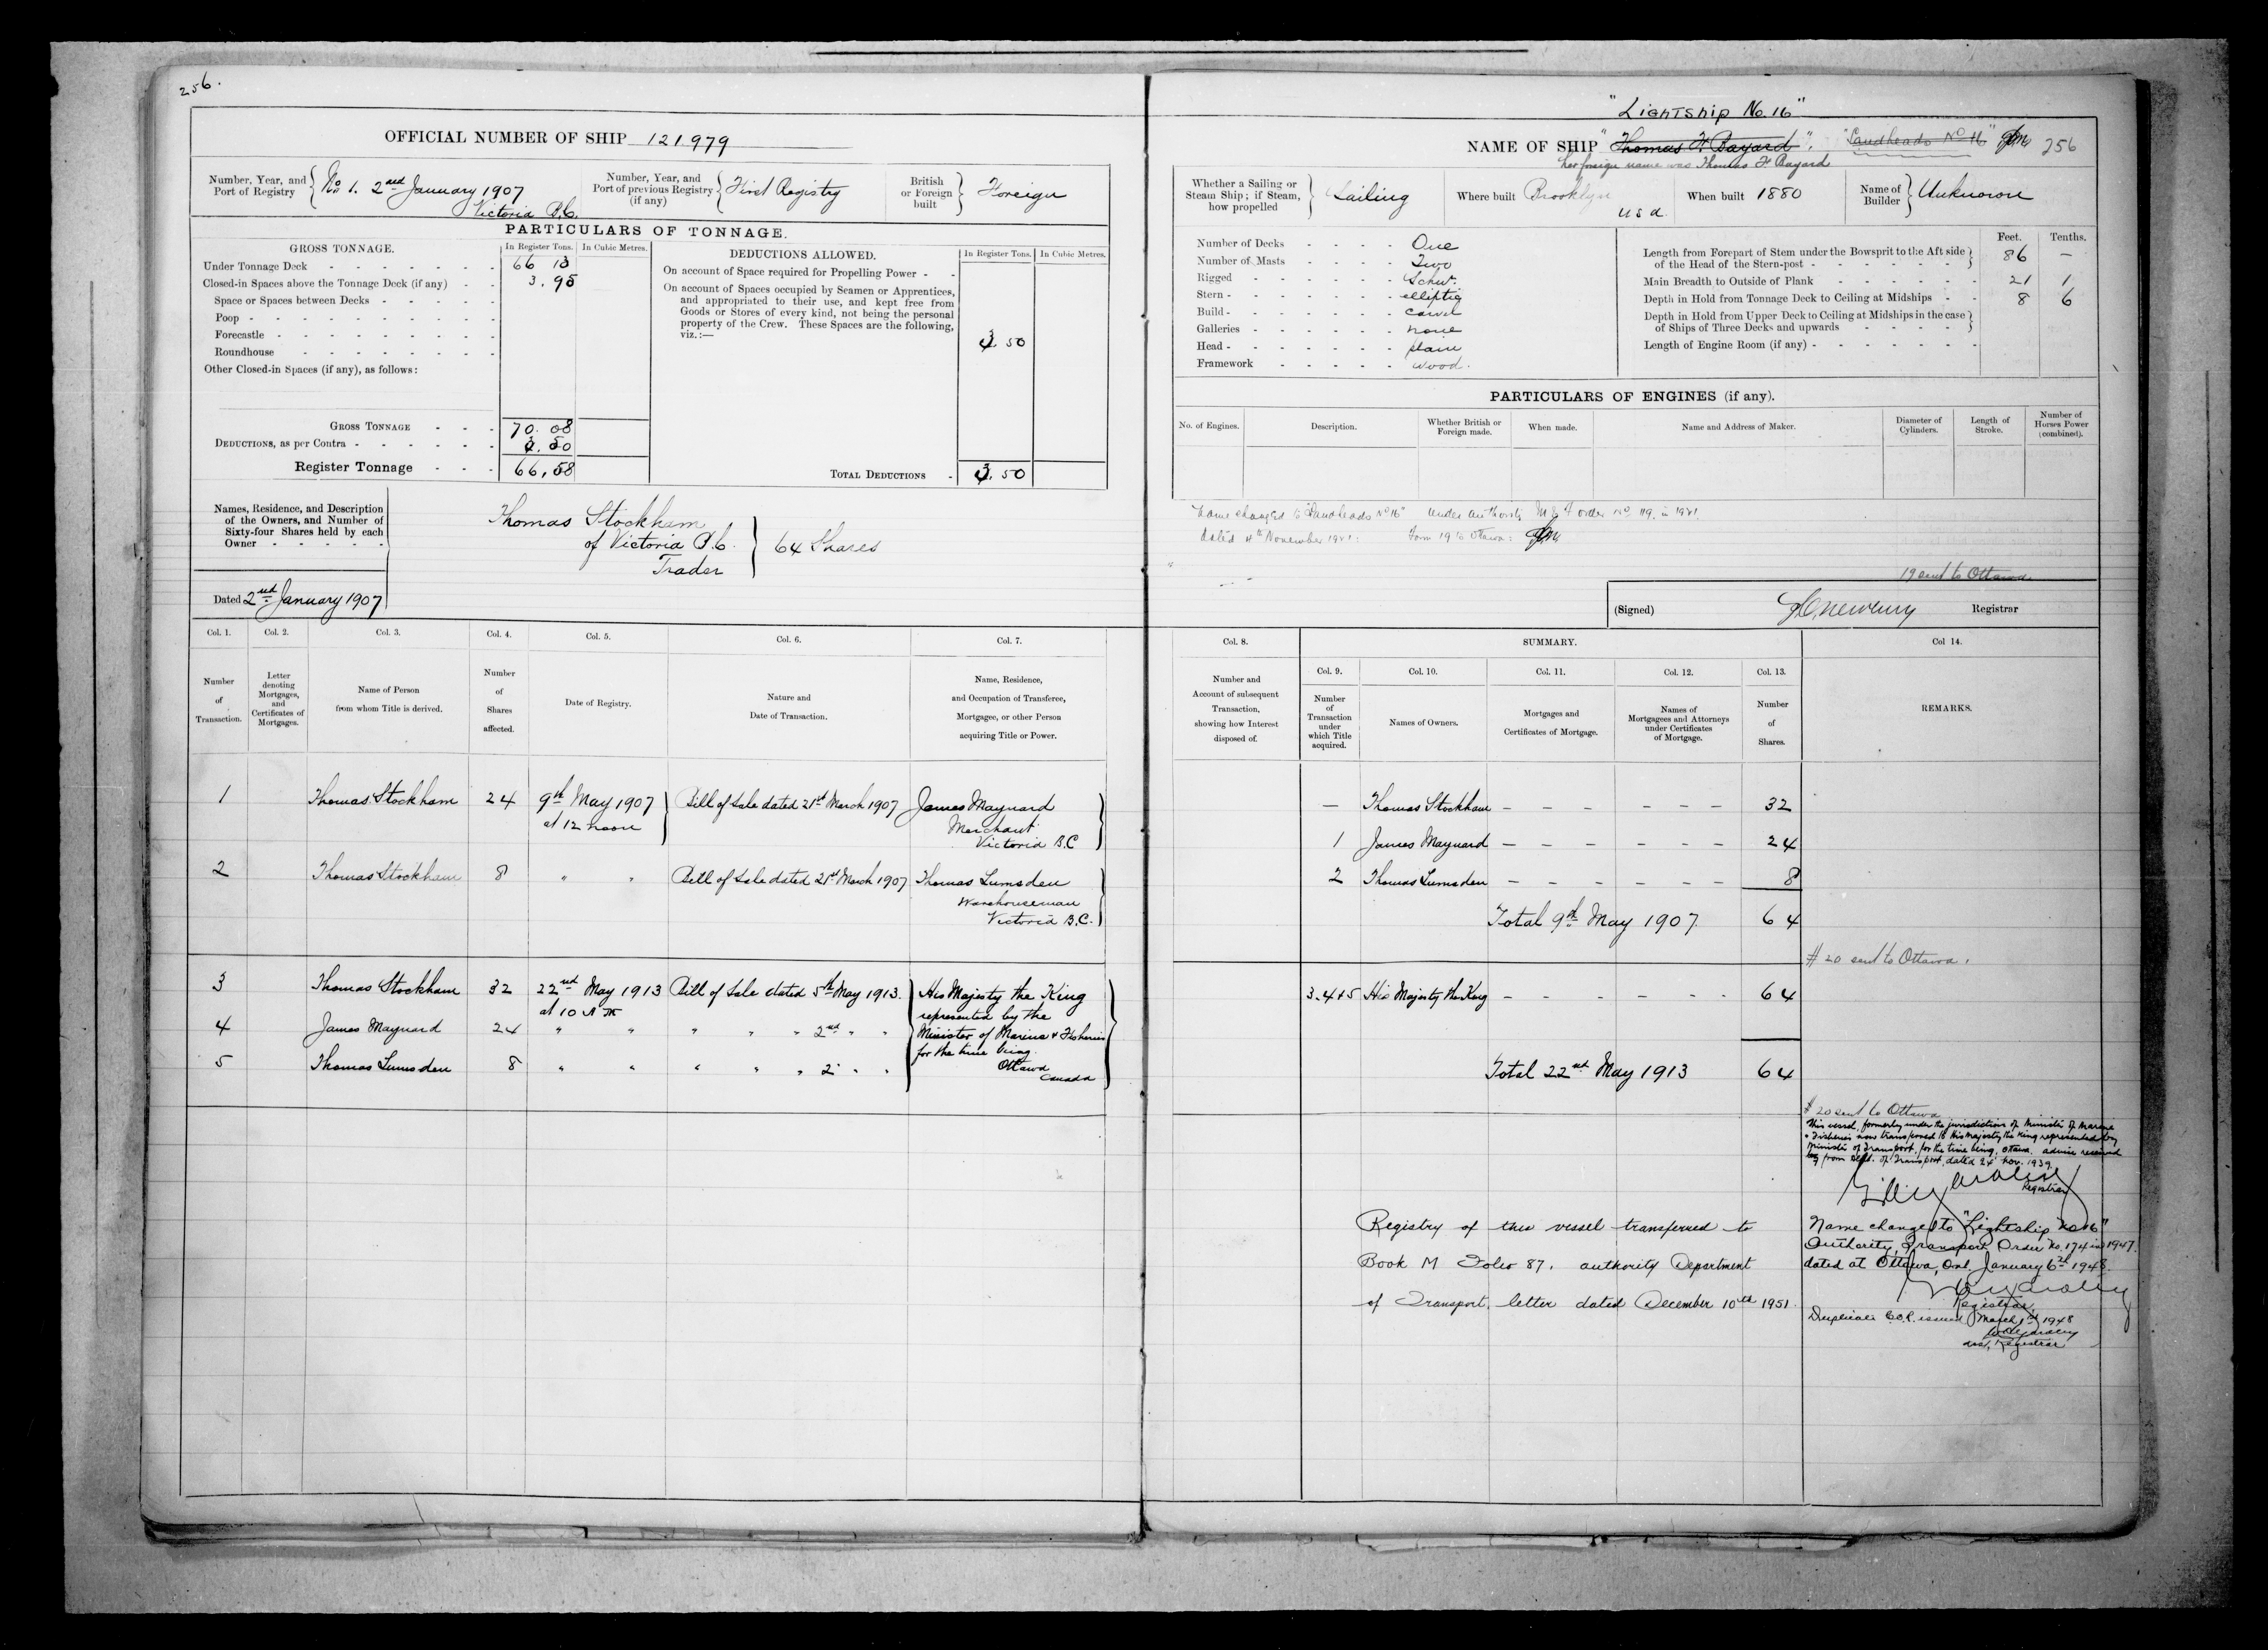 256.
OFFICIAL NUMBER OF SHIP 121,979
Number, Year, and Port of Registry } No 1. 2nd January 1907 Victoria B.C.
Number, Year, and Port of previous Registry (if any) } First Registry
British or Foreign built } Foreign
PARTICULARS OF TONNAGE.
GROSS TONNAGE. In Register Tons. In Cubic Metres.
Under Tonnage Deck - 66 13
Closed-in Spaces above the Tonnage Deck (if any) - 3.95
Space or Spaces between Decks -
Poop -
Forecastle -
Roundhouse
Other Closed-in Spaces (if any), as follows:
GROSS TONNAGE - 70.08
DEDUCTIONS, as per Contra - 3.50
Register Tonnage - 66,58
DEDUCTIONS ALLOWED. In Register Tons. In Cubic Metres.
On account of Space required for Propelling Power -
On account of Spaces occupied by Seamen or Apprentices,
and appropriated to their use, and kept free from
Goods or Stores of every kind, not being the personal
property of the Crew. These Spaces are the following,
viz.:— 3.50
TOTAL DEDUCTIONS - 3.50
Names, Residence, and Description
of the Owners, and Number of
Sixty-four Shares held by each
Owner -
Thomas Stockham
of Victoria B.C. } 64 Shares
Trader
Dated 2nd January 1907
Col. 1. Col. 2. Col. 3. Col. 4. Col. 5. Col. 6. Col. 7.
Number of Transaction.
Letter denoting Mortgages, and Certificates of Mortgages.
Name of Person from whom Title is derived.
Number of Shares affected.
Date of Registry.
Nature and Date of Transaction.
Name, Residence, and Occupation of Transferee, Mortgagee, or other Person acquiring Title or Power.
1 Thomas Stockham 24 9th May 1907 at 12 noon } Bill of Sale dated 21st March 1907 James Maynard
Merchant
Victoria B.C
2 Thomas Stockham 8 " " Bill of Sale dated 21st March 1907 Thomas Lumsden
Warehouseman
Victoria B.C.
3 Thomas Stockham 32 22nd May 1913 at 10 A M Bill of Sale dated 5th May 1913.
4 James Maynard 24 " " " " " 2nd " "
5 Thomas Lumsden 8 " " " " " 2" " "
His Majesty the King
represented by the
Minister of Marine & Fisheries
for the time being.
Ottawa
Canada
"Lightship No. 16"
NAME OF SHIP "Thomas F Bayard". "Sandheads No 16" 256
her foreign name was Thomas F Bayard
Whether a Sailing or Steam Ship; if Steam, how propelled } Sailing
Where built Brooklyn U S A.
When built 1880
Name of Builder } Unknown
Number of Decks - One
Number of Masts - Two
Rigged - Schr.
Stern - elliptic
Build - carvel
Galleries - none
Head - plain
Framework - wood.
Feet. Tenths.
Length from Forepart of Stem under the Bowsprit to the Aft side
of the Head of the Stern-post - 86 —
Main Breadth to Outside of Plank 21 1
Depth in Hold from Tonnage Deck to Ceiling at Midships - 8 6
Depth in Hold from Upper Deck to Ceiling at Midships in the case
of Ships of Three Decks and upwards -
Length of Engine Room (if any) -
PARTICULARS OF ENGINES (if any).
No. of Engines. Description. Whether British or Foreign made. When made. Name and Address of Maker. Diameter of Cylinders. Length of Stroke. Number of Horses Power (combined).
Name changed to "Sandheads No 16" under authority M & F order No 119. in 1921.
dated 4th November 1921: Form 19 to Ottawa:
19 sent to Ottawa.
(Signed) Registrar
Col. 8. SUMMARY. Col 14.
Col. 9. Col. 10. Col. 11. Col. 12. Col. 13.
Number and Account of subsequent Transaction, showing how Interest disposed of.
Number of Transaction under which Title acquired.
Names of Owners.
Mortgages and Certificates of Mortgage.
Names of Mortgagees and Attorneys under Certificates of Mortgage.
Number of Shares.
REMARKS.
— Thomas Stockham - - - - - - 32
1 James Maynard - - - - - - 24
2 Thomas Lumsden - - - - - - 8
Total 9th May 1907 64
# 20 sent to Ottawa.
3.4+5 His Majesty the King - - - - - - 64
Total 22nd May 1913 64
# 20 sent to Ottawa
This vessel, formerly under the jurisdiction of Minister of Marine
& Fisheries now transferred to His Majesty the King represented by
Minister of Transport, for the time being, Ottawa. advice received
from Dept. of Transport dated 24 Nov. 1939.
Registrar
Registry of this vessel transferred to
Book M Folio 87. authority Department
of Transport, letter dated December 10th 1951.
Name changed to "Lightship No 16"
Authority, Transport Order No. 174 in 1947.
dated at Ottawa, Ont. January 6th 1948.
Registrar
Duplicate C.O.R. issued March 1st 1948
Registrar